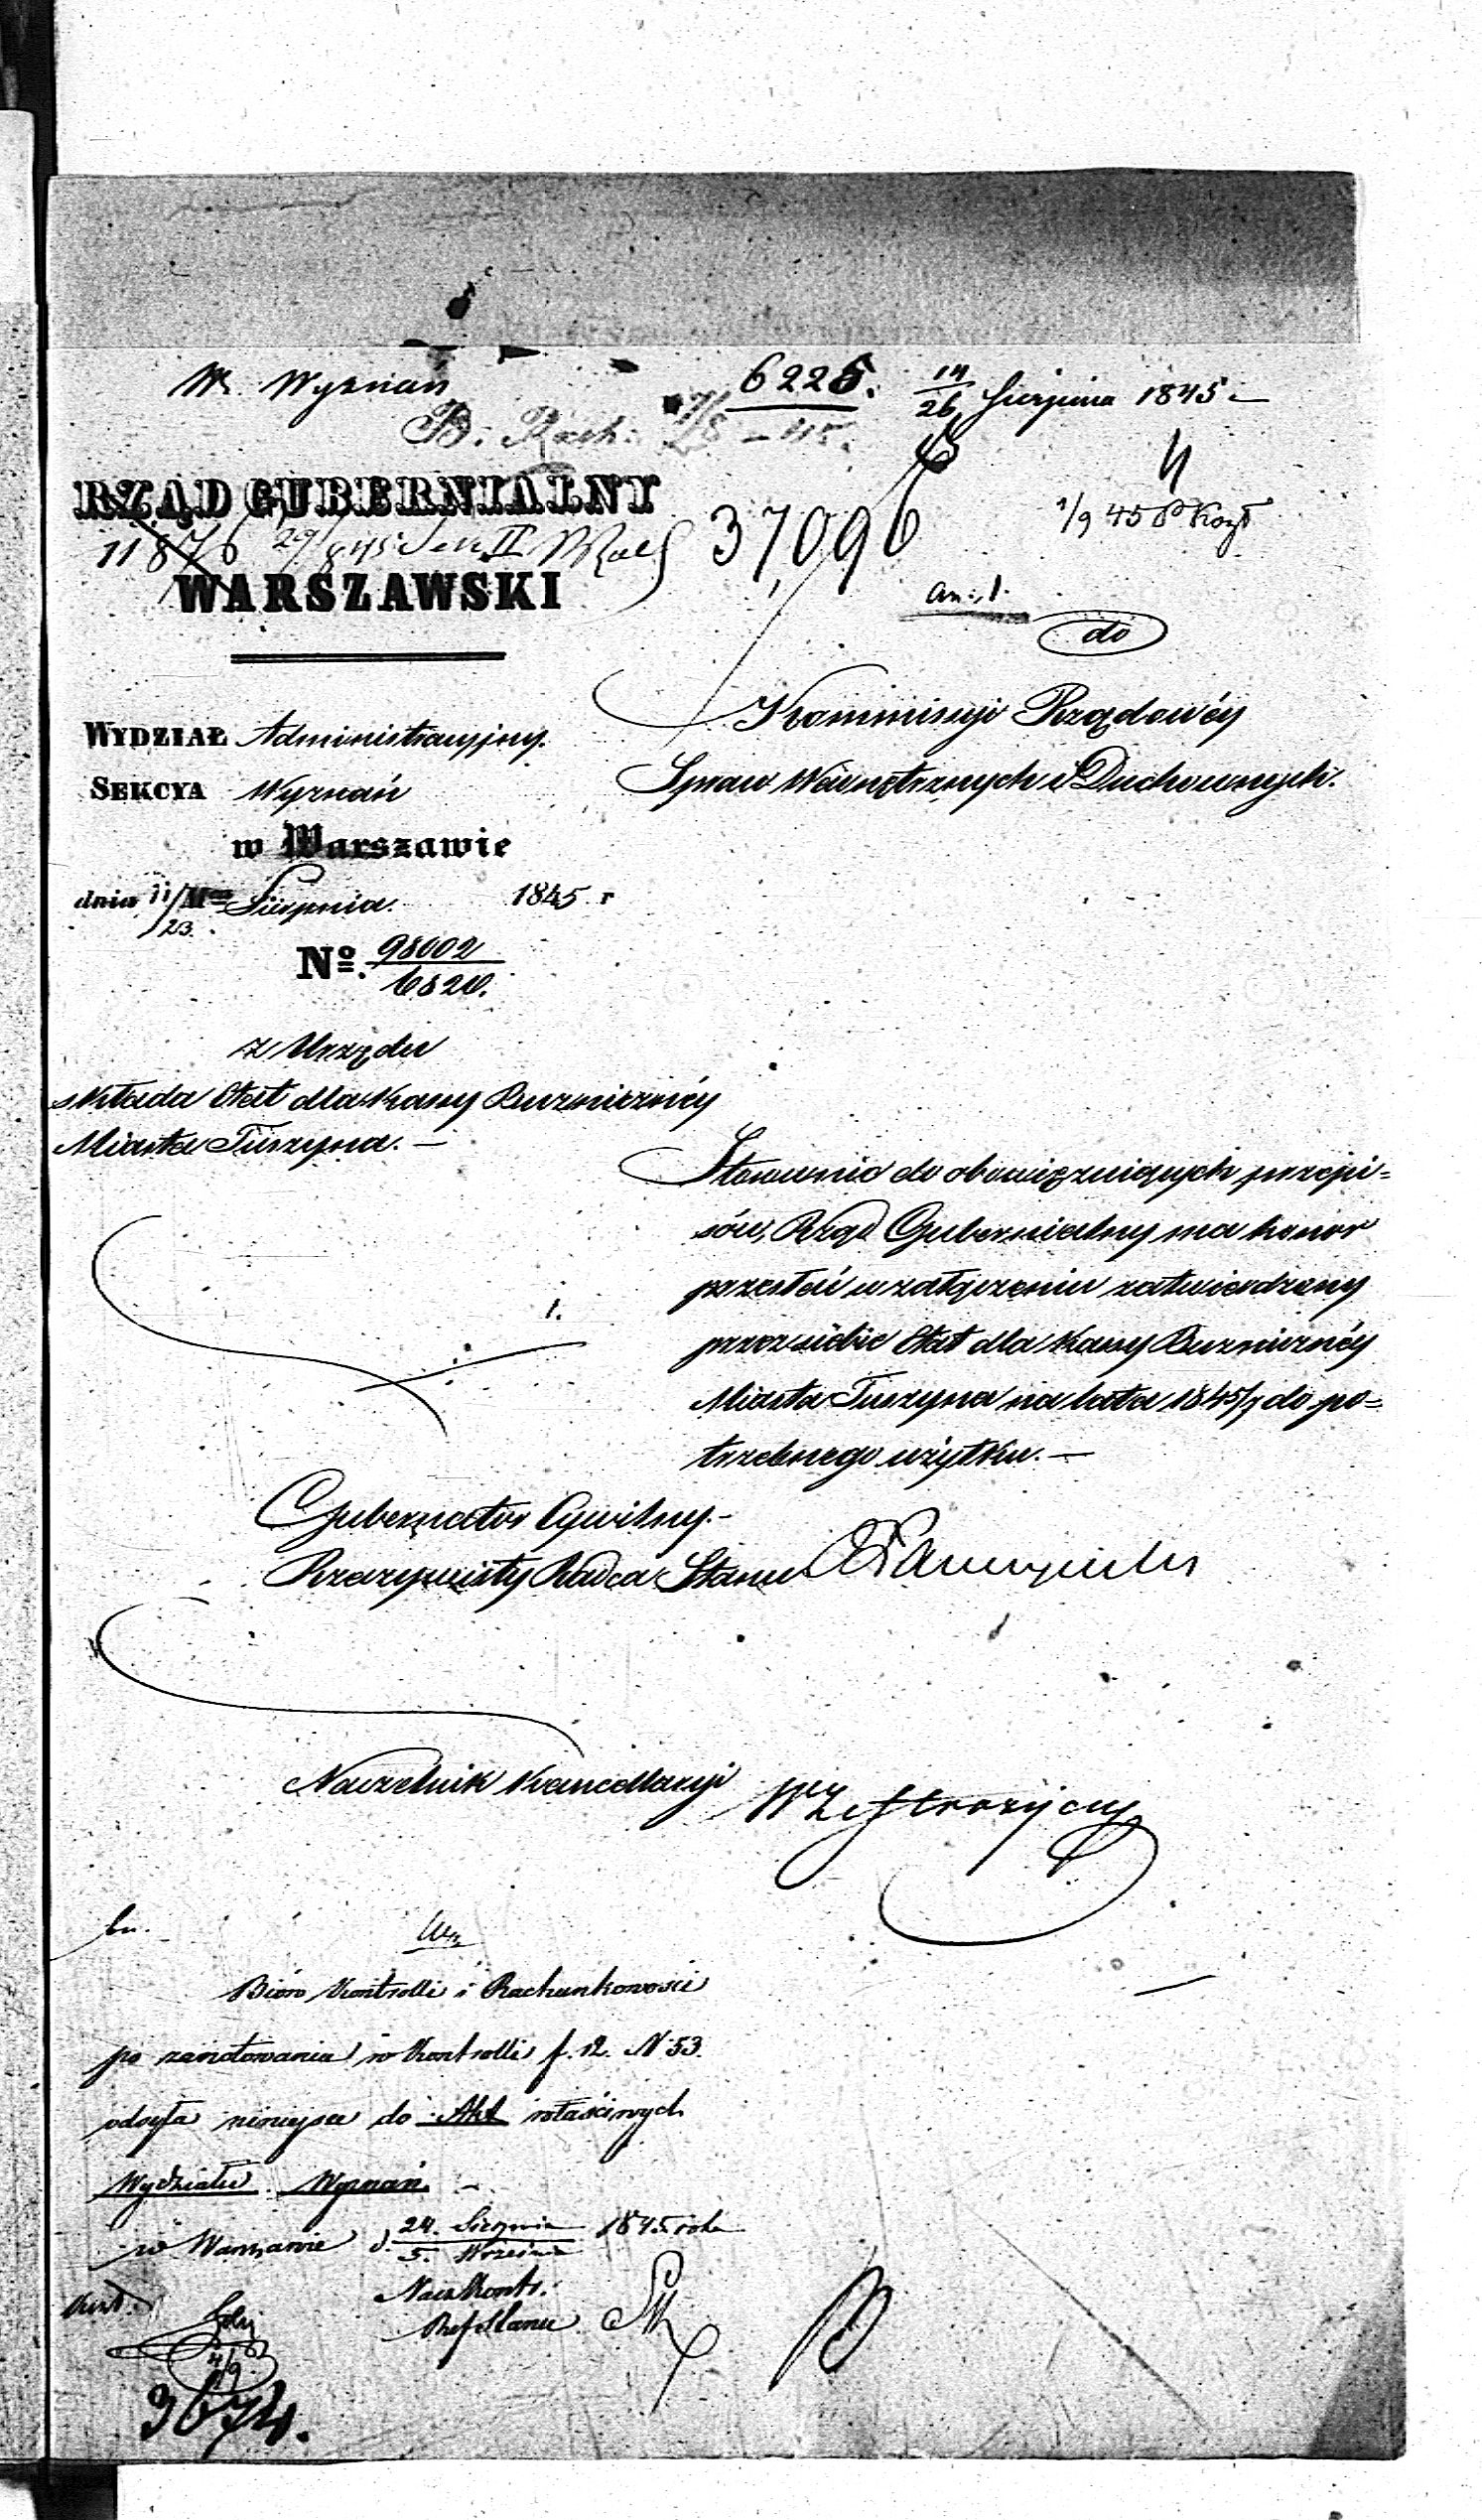 W. Wyznań
6225. 14/26 Sierpnia 1845
B. Rach:
RZĄD GUBERNIALNY
11876 29/8 45 II
37,096
1/9 45
WARSZAWSKI
an: 1.
do
Kommissyi Rządowéy
Spraw Wewnętrznych i Duchownych.
WYDZIAŁ Administracyjny.
SEKCYA Wyznań
w Warszawie
dnia 11/23 Sierpnia 1845 r
No. 98002/6820.
z Urzędu
składa Etat dla Kassy Buznicznéy
Miasta Tuszyna. —
Stosownie do obowięzuiących przepi=
sów, Rząd Gubernialny ma honor
przesłać w załączeniu zatwierdzony
przez siebie Etat dla Kassy Buznicznéy
Miasta Tuszyna na lata 1845/7 do po=
trzebnego użytku. —
1.
Gubernator Cywilny. —
Rzeczywisty Radca Stanu
Naczelnik Kancellaryi
Bióro Kontrolli i Rachunkowości
po zanotowaniu w Kontrolli f. 12. N 53.
odsyła niniejsze do Akt właściwych
Wydziału Wyznań. —
w Warszawie d. 24. Sierpnia/5. Września 1845 roku
Nacz Kontr.
Ref Stanu
4/9
3674.